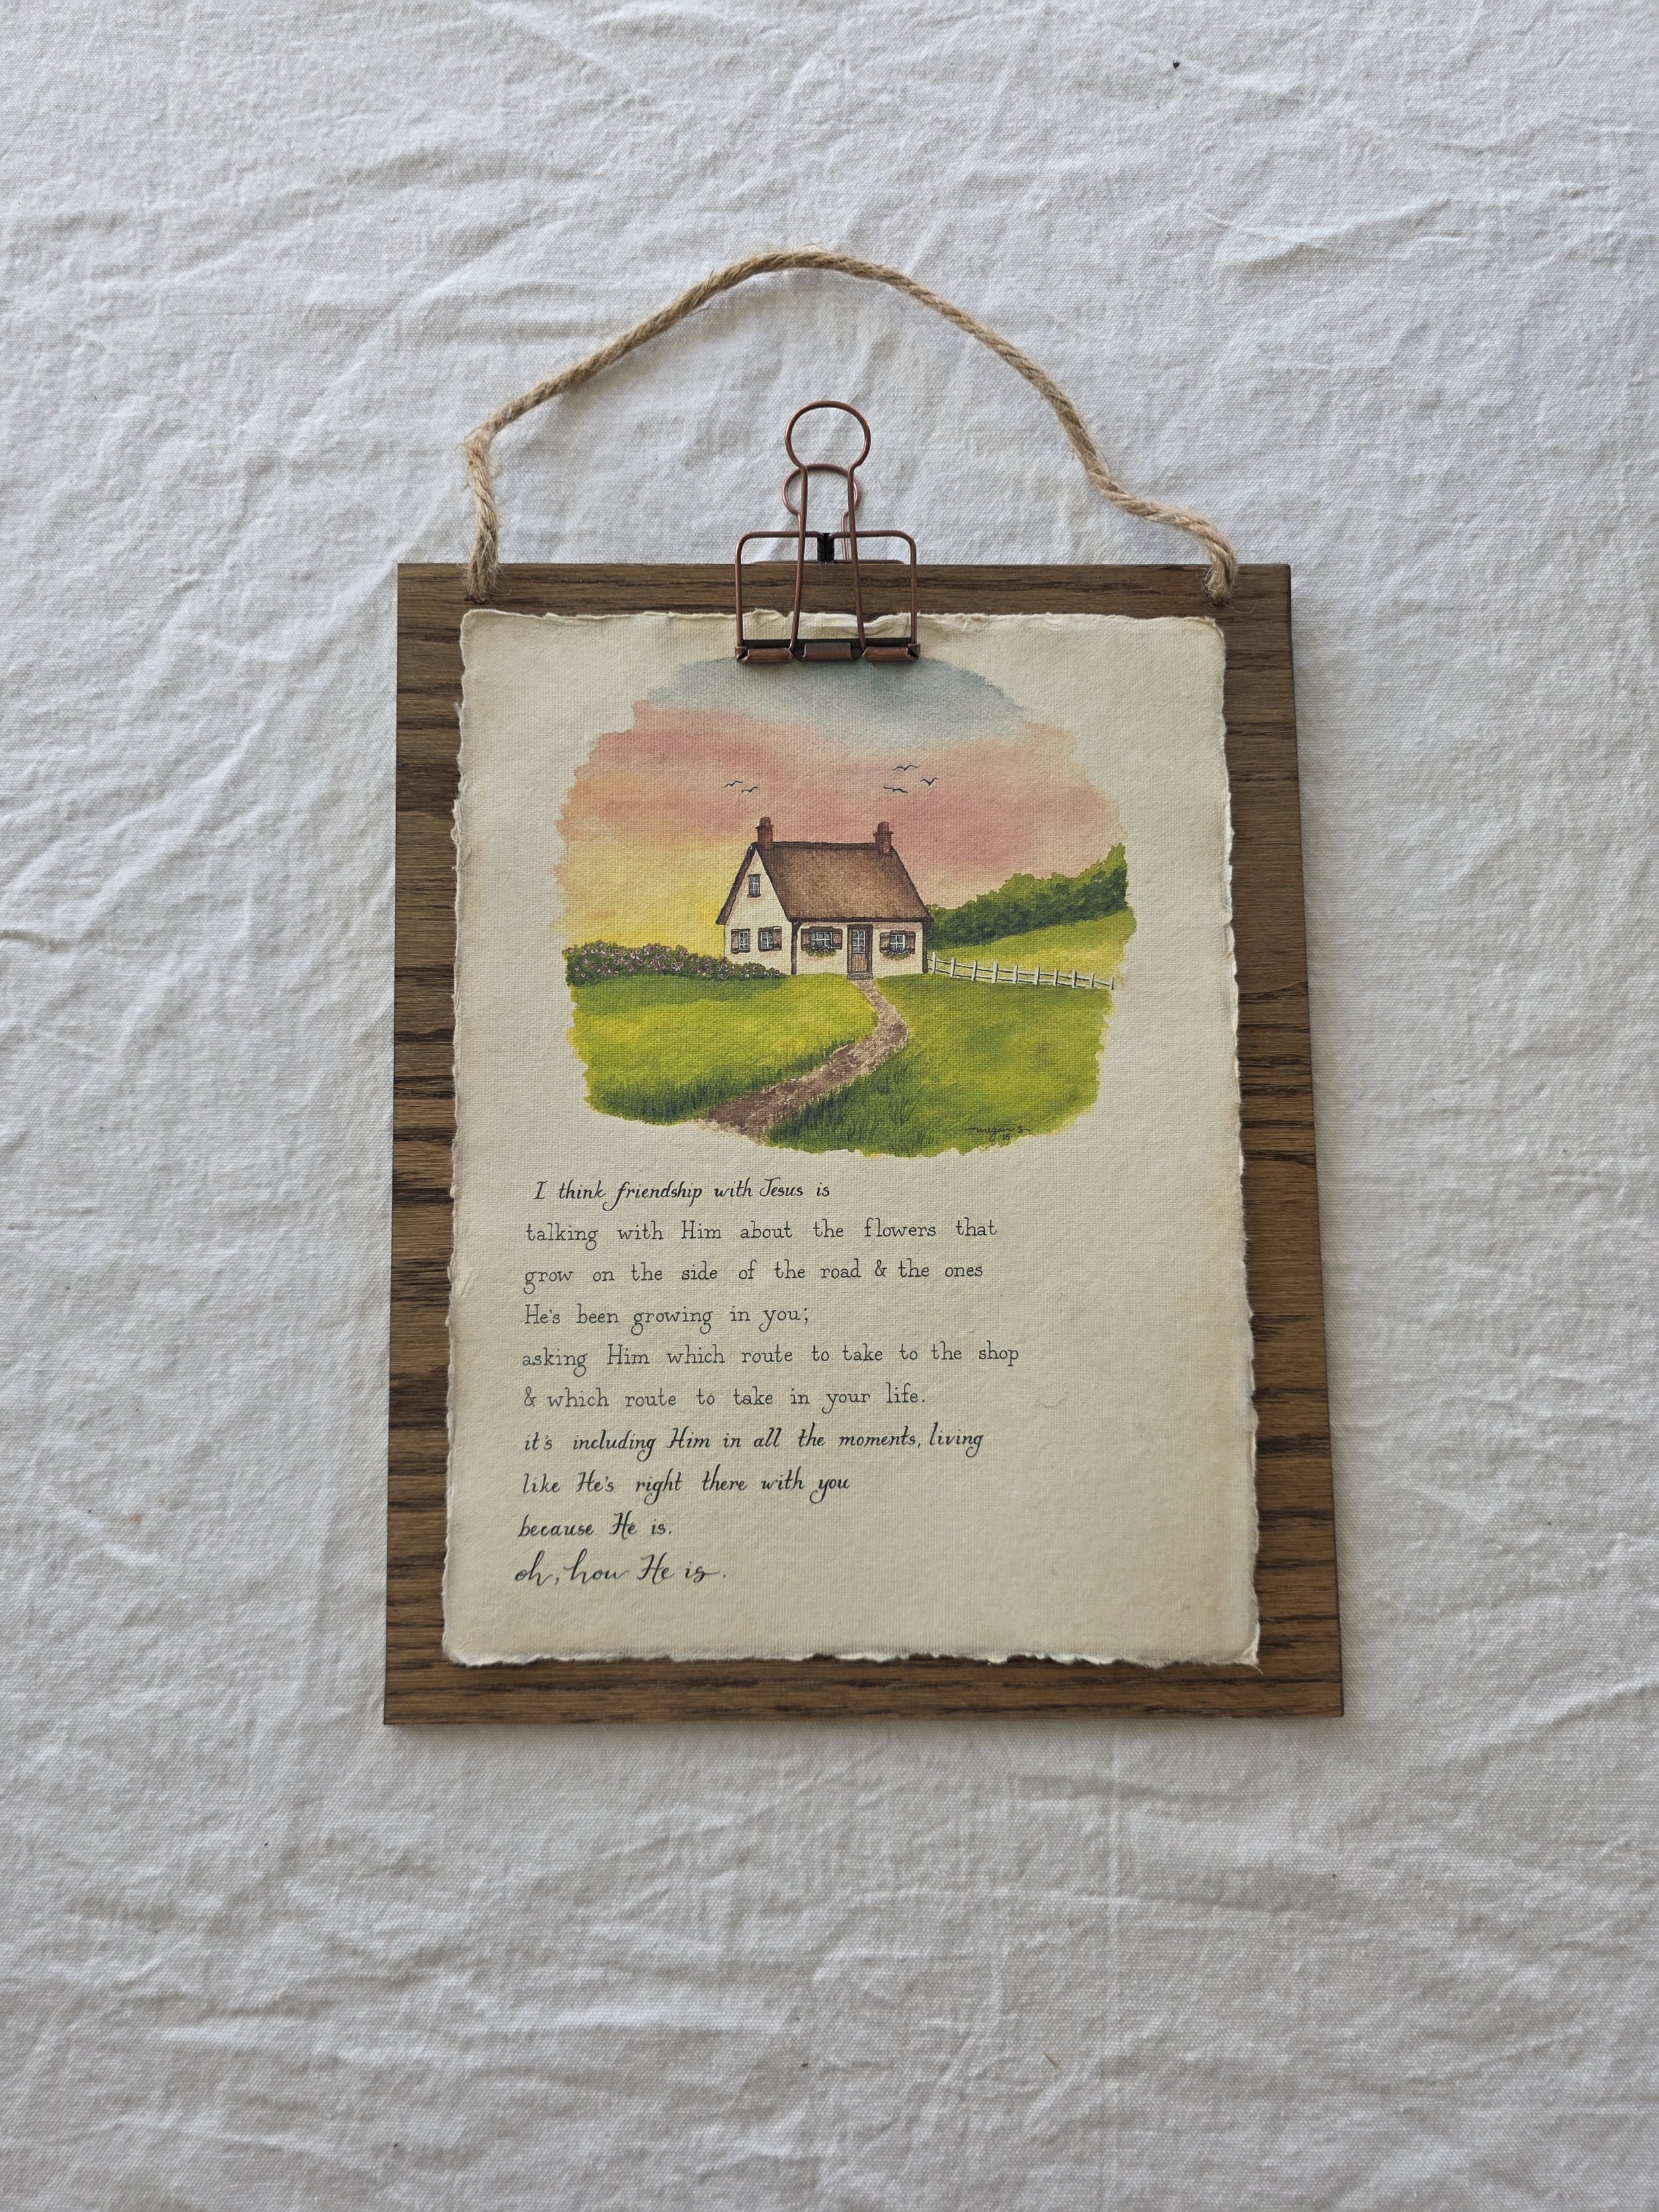 megan s.
I think friendship with Jesus is
talking with Him about the flowers that
grow on the side of the road & the ones
He's been growing in you;
asking Him which route to take to the shop
& which route to take in your life.
it's including Him in all the moments, living
like He's right there with you
because He is.
oh, how He is.